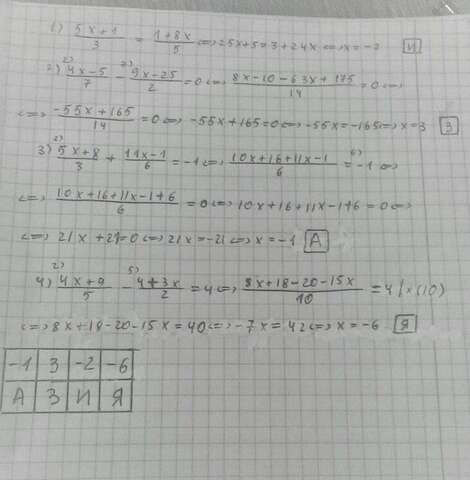 1) 5x+1/3 = 1+8x/5 <=> 25x+5=3+24x <=> x=-2 И
2) 2) 4x-5/7 - 7) 9x-25/2 =0 <=> 8x-10-63x+175/14 =0 <=>
<=> -55x+165/14 =0 <=> -55x+165=0 <=> -55x=-165 <=> x=3 З
3) 2) 5x+8/3 + 11x-1/6 =-1 <=> 10x+16+11x-1/6 = 6) -1 <=>
<=> 10x+16+11x-1+6/6 =0 <=> 10x+16+11x-1+6=0 <=>
<=> 21x+21=0 <=> 21x=-21 <=> x=-1 А
4) 2) 4x+9/5 - 5) 4+3x/2 =4 <=> 8x+18-20-15x/10 =4 | ×(10)
<=> 8x+18-20-15x=40 <=> -7x=42 <=> x=-6 Я
-1 3 -2 -6
А З И Я